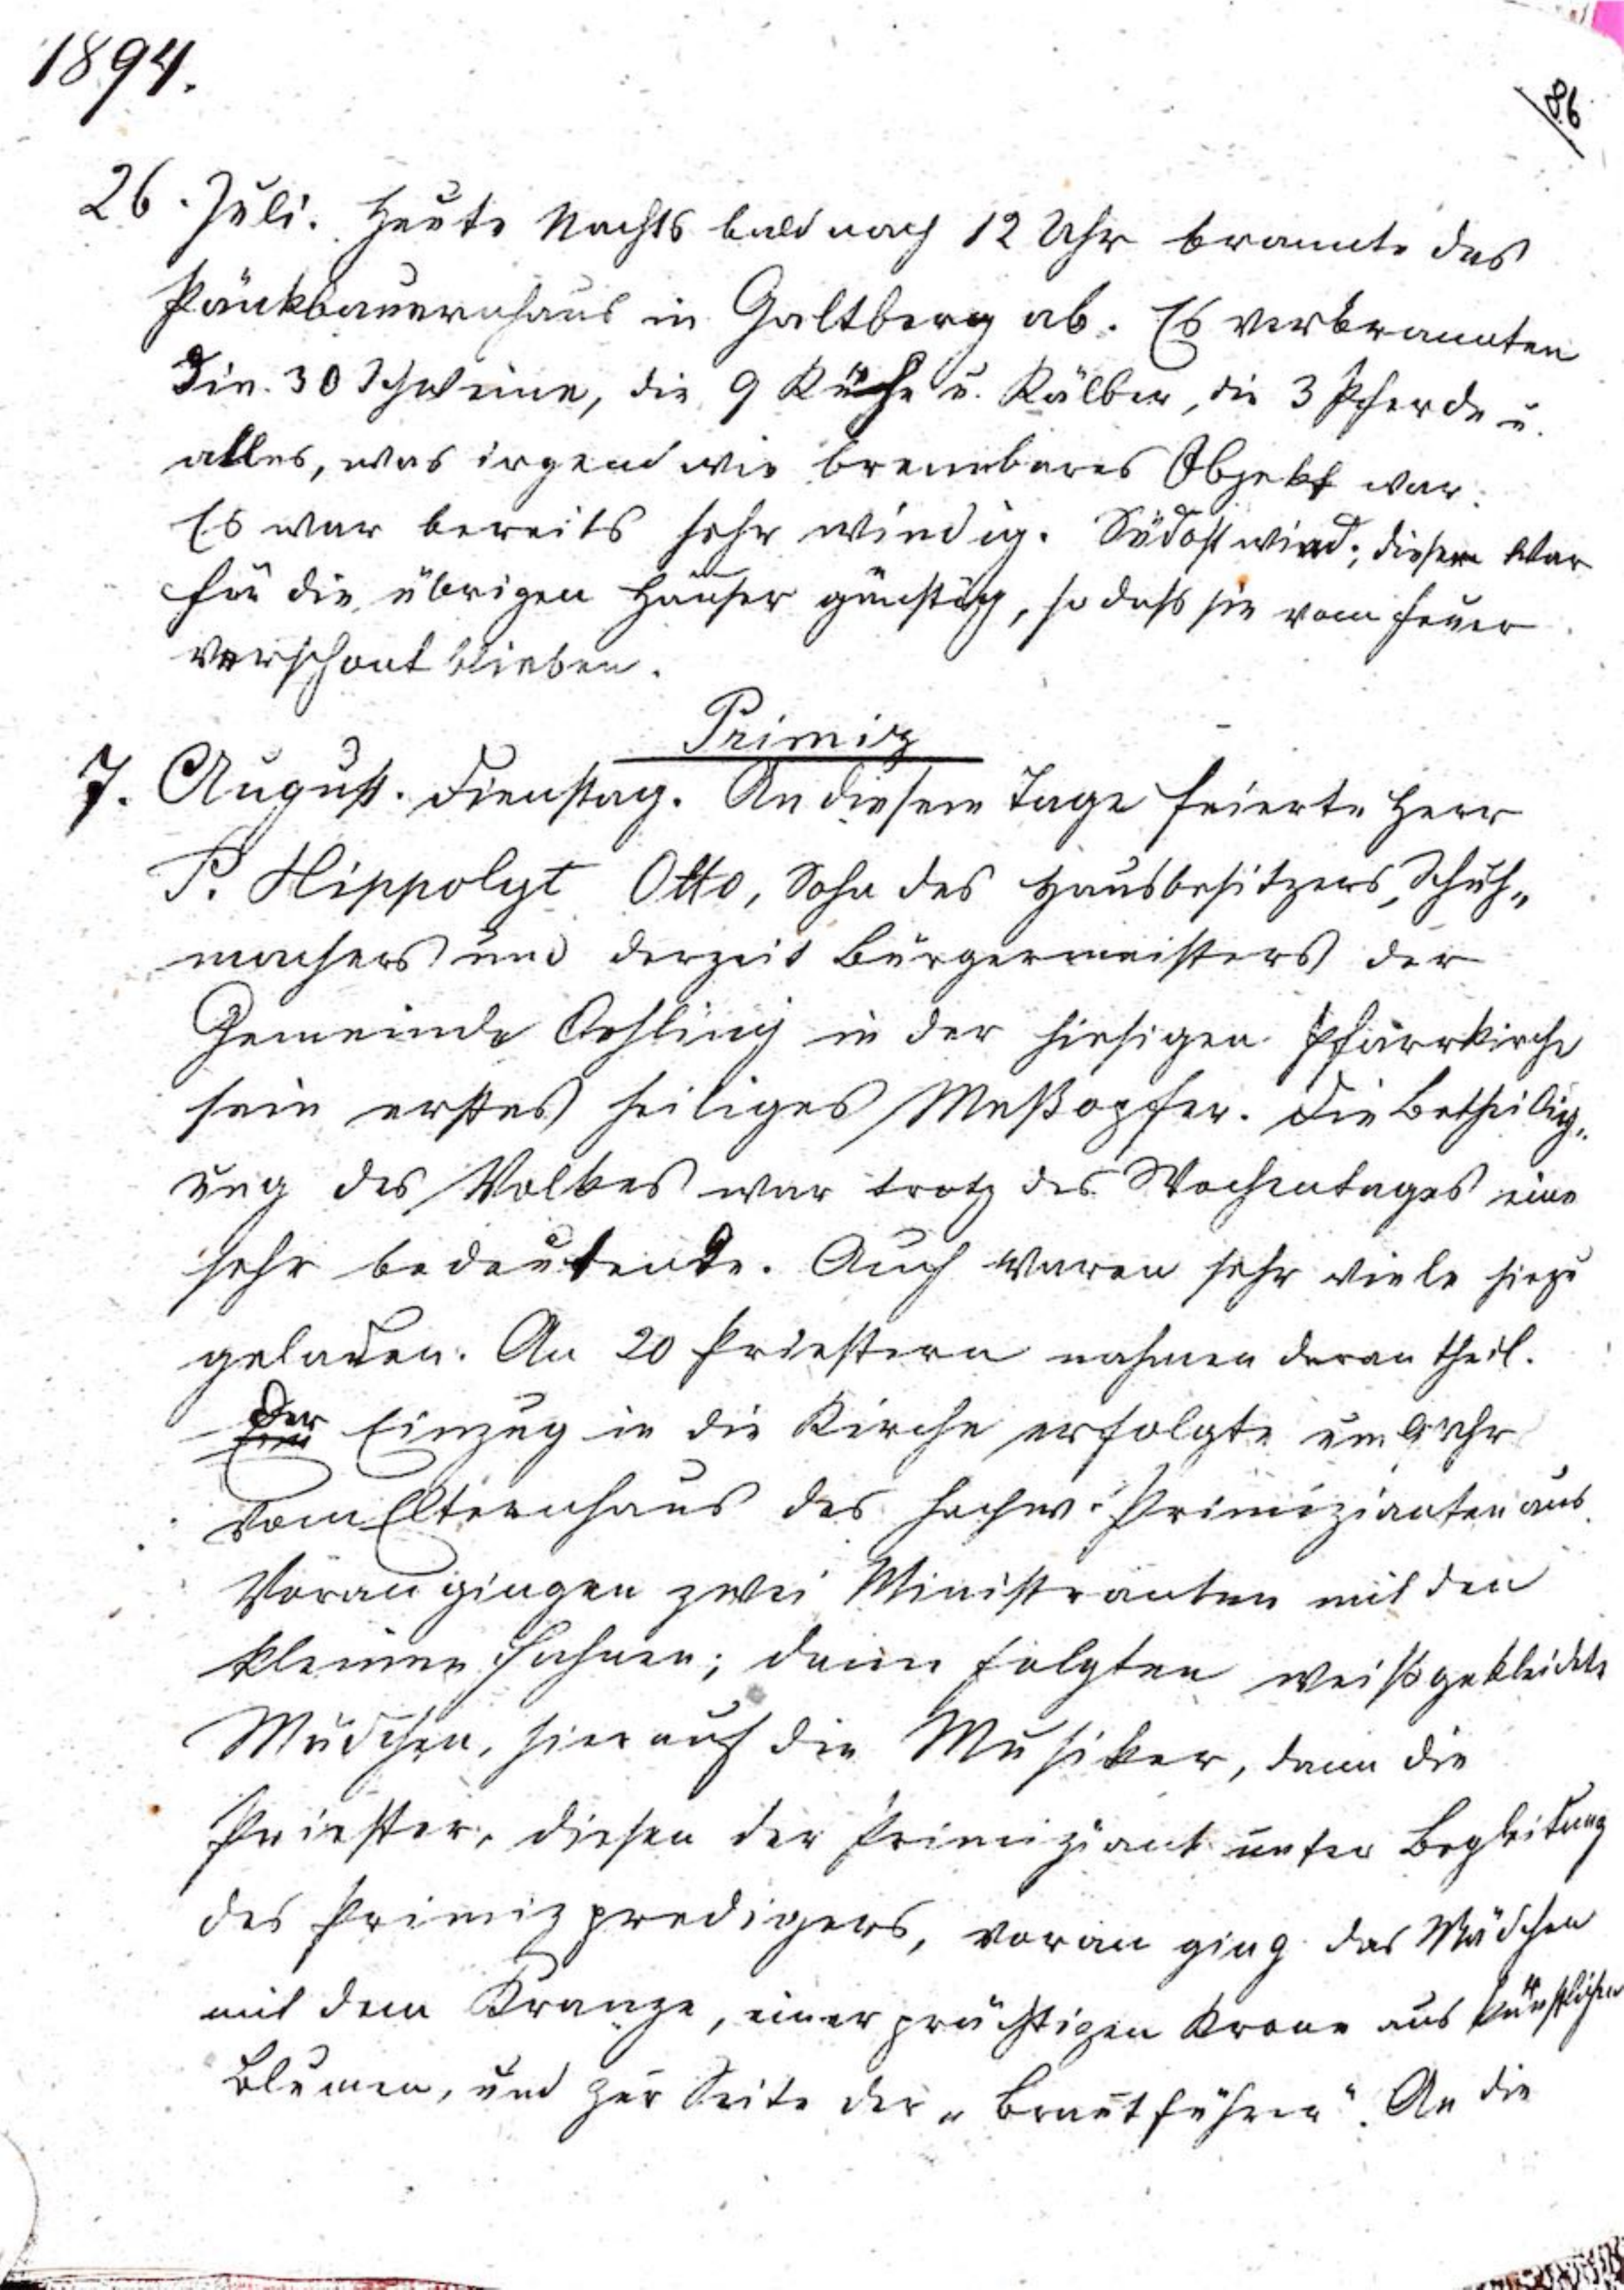 1894.
86
26. Juli. Heute Nachts bald nach 12 Uhr brannte das
Pänkbauernhaus in Galtberg ab. Es verbrannten
Die 30 Schweine, die 9 Kühe u. Kälber, die 3 Pferde u.
alles, was irgend wie brennbares Objekt war.
Es war bereits sehr windig. Südostwind; dieser war
für die übrigen Häuser günstig, so daß sie vom Feuer
verschont blieben.
Primiz
7. August. Dienstag. An diesem Tage feierte Herr
P. Hippolyt Otto, Sohn des Hausbesitzers, Schuh„
machers und derzeit Bürgermeisters der
Gemeinde Oehling in der hiesigen Pfarrkirche
sein erstes heiliges Meßopfer. Die Betheilig„
ung des Volkes war trotz des Wochentages eine
sehr bedeutende. Auch waren sehr viele hiezu
geladen. An 20 Priestern nahmen daran theil.
Der Einzug in die Kirche erfolgte um 9 Uhr
vom Elternhaus des hochw. Primizianten aus.
Voran gingen zwei Ministranten mit den
kleinen Fahnen; dann folgten weißgekleidete
Mädchen, hierauf die Musiker, dann die
Priester, diesen der Primiziant unter Begleitung
des Primizpredigers, voran ging das Mädchen
mit dem Kranze, einer prächtigen Krone aus künstlichen
Blumen, und zur Seite der „Brautführer". An die